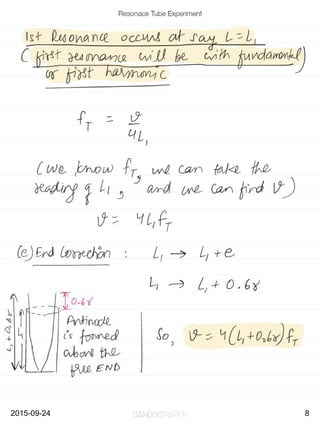 Resonace Tube Experiment
1st Resonance occurs at say L=L₁
( first resonance will be with fundamental)
or first harmonic
f_T = v / 4L₁
(we know f_T, we can take the
reading of L₁, and we can find v)
v = 4L₁f_T
(e) End Correction : L₁ → L₁ + e
L₁ → L₁ + 0.6r
L₁ + 0.6r
L₁
0.6r
Antinode
is formed
above the
free END
So, v = 4(L₁+0.6r) f_T
2015-09-24
8